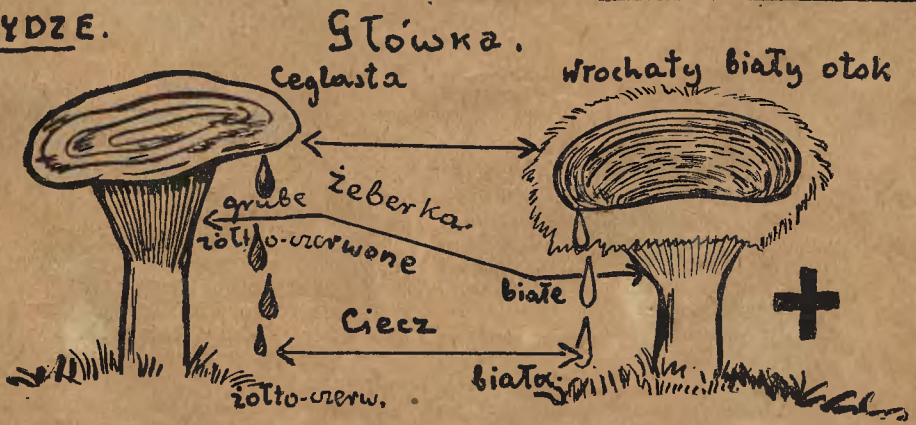 YDZE.
Główka.
Ceglasta
wrochaty biały otok
żeberka.
grube
żółto-czerwone
białe
Ciecz
biała
żółto-czerw.